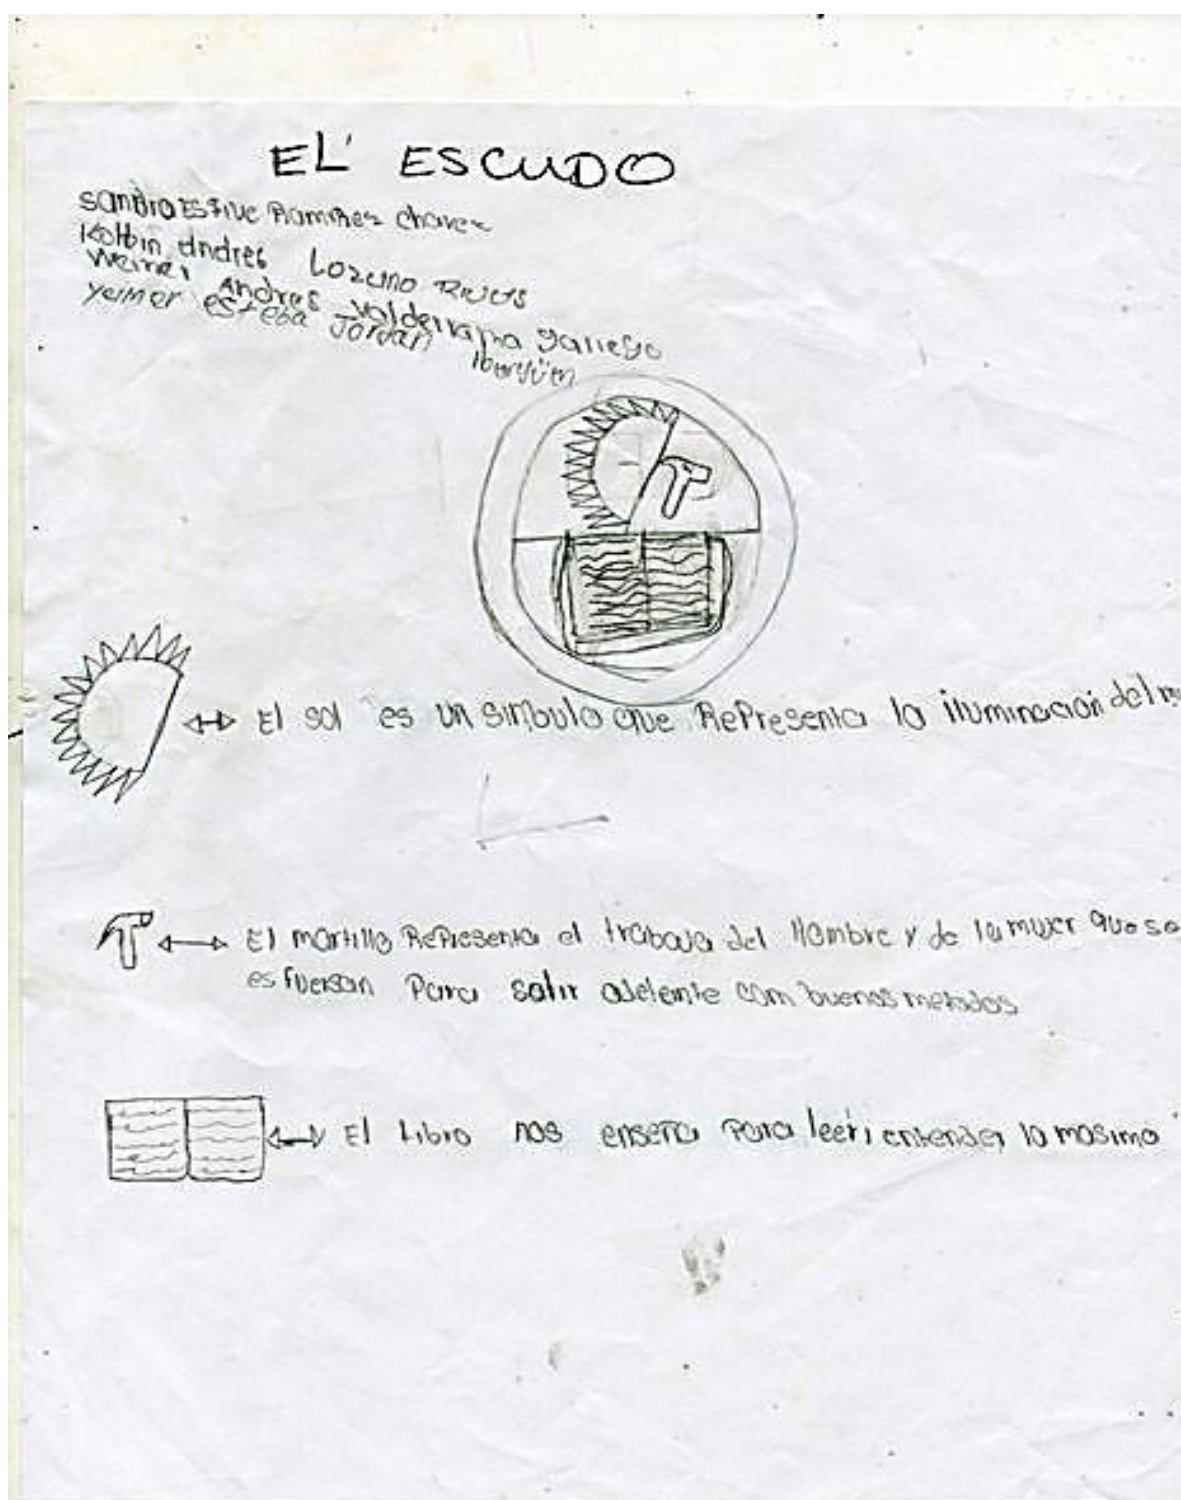 EL ESCUDO
Sandra Estive Ramires chaves
Kolbin Andres Lozano Rivas
Weimer Andres Valderrama gallego
Yeimer esteba Jordan Ibargüen
El sol es un simbulo que Representa la iluminacion del
El martillo Representa el trabaja del Hombre y de la mujer que se
esfuersan Para salir adelante com buenos metodos
El Libro nos enseña Para leer, entender lo masimo